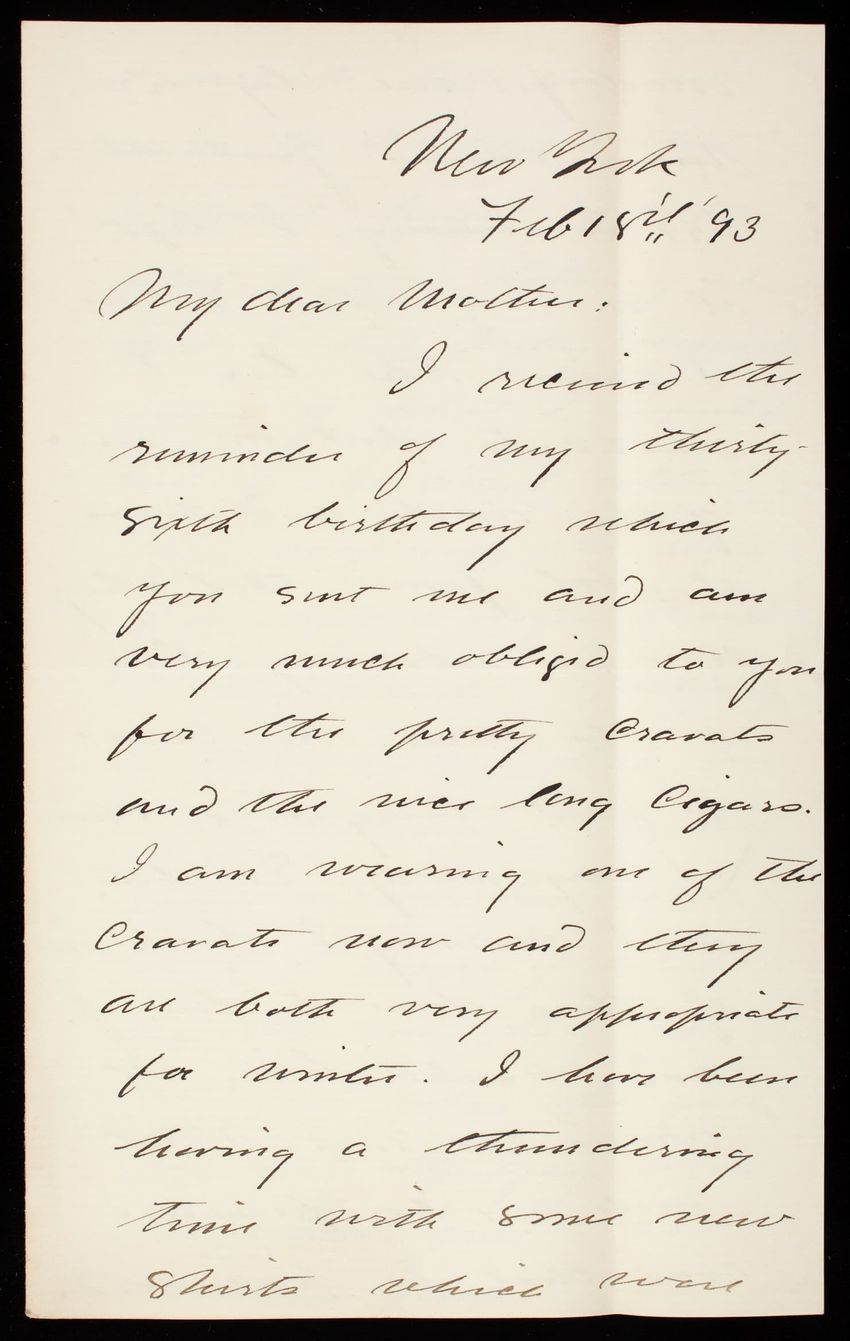 New York
Feb 18th '93
My dear Mother:
I received the
reminder of my thirty-
sixth birthday which
you sent me and am
very much obliged to you
for the pretty Cravats
and the nice long Cigars.
I am wearing one of the
Cravats now and they
are both very appropriate
for winter. I have been
having a thundering
time with some new
Shirts which were